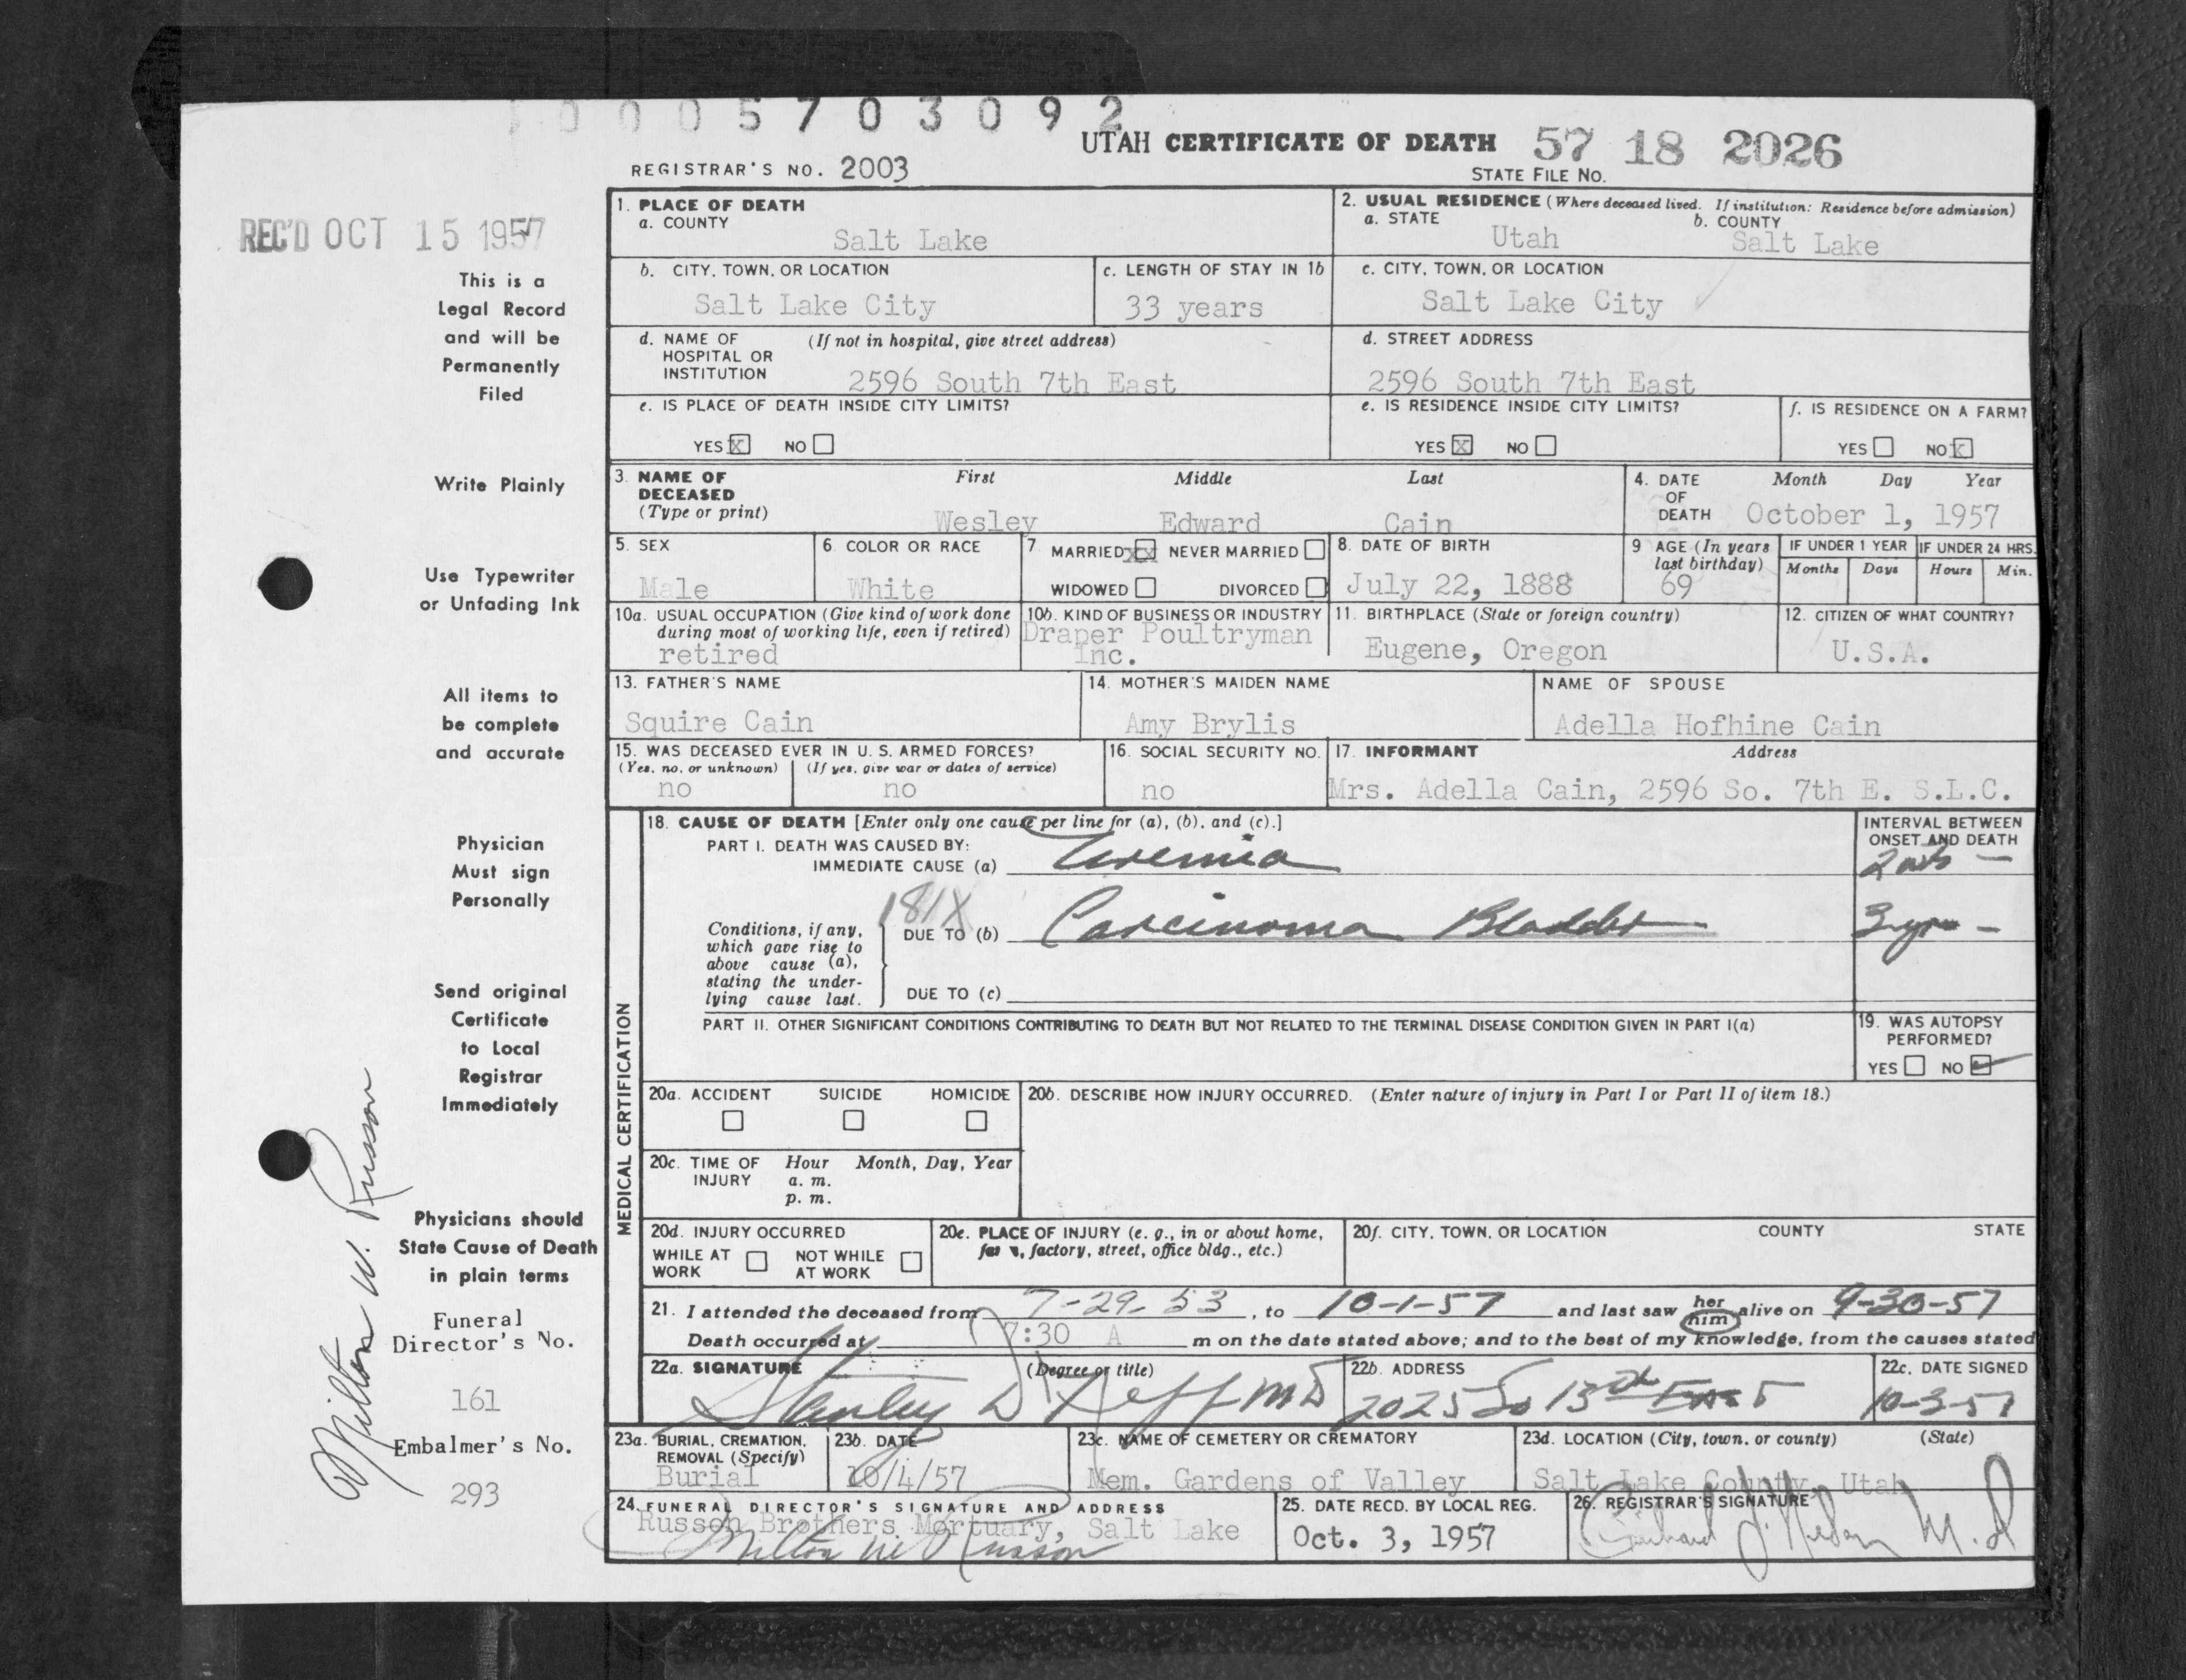 0005703092
UTAH CERTIFICATE OF DEATH 57 18 2026
REGISTRAR'S NO. 2003
STATE FILE NO.
REC'D OCT 15 1957
This is a
Legal Record
and will be
Permanently
Filed
Write Plainly
Use Typewriter
or Unfading Ink
All items to
be complete
and accurate
Physician
Must sign
Personally
Send original
Certificate
to Local
Registrar
Immediately
Physicians should
State Cause of Death
in plain terms
Funeral
Director's No.
161
Embalmer's No.
293
Milton W. Russon
1. PLACE OF DEATH
a. COUNTY
Salt Lake
2. USUAL RESIDENCE (Where deceased lived. If institution: Residence before admission)
a. STATE b. COUNTY
Utah Salt Lake
b. CITY, TOWN, OR LOCATION
Salt Lake City
c. LENGTH OF STAY IN 1b
33 years
c. CITY, TOWN, OR LOCATION
Salt Lake City
d. NAME OF (If not in hospital, give street address)
HOSPITAL OR
INSTITUTION
2596 South 7th East
d. STREET ADDRESS
2596 South 7th East
e. IS PLACE OF DEATH INSIDE CITY LIMITS?
YES X NO
e. IS RESIDENCE INSIDE CITY LIMITS?
YES X NO
f. IS RESIDENCE ON A FARM?
YES NO X
3. NAME OF First Middle Last
DECEASED
(Type or print)
Wesley Edward Cain
4. DATE Month Day Year
OF
DEATH October 1, 1957
5. SEX
Male
6. COLOR OR RACE
White
7. MARRIED XX NEVER MARRIED
WIDOWED DIVORCED
8. DATE OF BIRTH
July 22, 1888
9 AGE (In years
last birthday)
69
IF UNDER 1 YEAR IF UNDER 24 HRS.
Months Days Hours Min.
10a. USUAL OCCUPATION (Give kind of work done
during most of working life, even if retired)
retired
10b. KIND OF BUSINESS OR INDUSTRY
Draper Poultryman
Inc.
11. BIRTHPLACE (State or foreign country)
Eugene, Oregon
12. CITIZEN OF WHAT COUNTRY?
U.S.A.
13. FATHER'S NAME
Squire Cain
14. MOTHER'S MAIDEN NAME
Amy Brylis
NAME OF SPOUSE
Adella Hofhine Cain
15. WAS DECEASED EVER IN U. S. ARMED FORCES?
(Yes, no, or unknown) (If yes, give war or dates of service)
no no
16. SOCIAL SECURITY NO.
no
17. INFORMANT Address
Mrs. Adella Cain, 2596 So. 7th E. S.L.C.
MEDICAL CERTIFICATION
18. CAUSE OF DEATH [Enter only one cause per line for (a), (b), and (c).]
PART I. DEATH WAS CAUSED BY:
IMMEDIATE CAUSE (a) Uremia
INTERVAL BETWEEN
ONSET AND DEATH
181X
Conditions, if any,
which gave rise to
above cause (a),
stating the under-
lying cause last.
DUE TO (b) Carcinoma Bladder
3 yrs -
DUE TO (c)
PART II. OTHER SIGNIFICANT CONDITIONS CONTRIBUTING TO DEATH BUT NOT RELATED TO THE TERMINAL DISEASE CONDITION GIVEN IN PART I(a)
19. WAS AUTOPSY
PERFORMED?
YES NO ✓
20a. ACCIDENT SUICIDE HOMICIDE
20b. DESCRIBE HOW INJURY OCCURRED. (Enter nature of injury in Part I or Part II of item 18.)
20c. TIME OF Hour Month, Day, Year
INJURY a. m.
p. m.
20d. INJURY OCCURRED
WHILE AT NOT WHILE
WORK AT WORK
20e. PLACE OF INJURY (e. g., in or about home,
factory, street, office bldg., etc.)
20f. CITY, TOWN, OR LOCATION COUNTY STATE
21. I attended the deceased from 7-29-53, to 10-1-57 and last saw her him alive on 9-30-57
Death occurred at 7:30 A m on the date stated above; and to the best of my knowledge, from the causes stated
22a. SIGNATURE (Degree or title)
Stanley D Neff MD
22b. ADDRESS
2025 So 13th East
22c. DATE SIGNED
10-3-57
23a. BURIAL, CREMATION,
REMOVAL (Specify)
Burial
23b. DATE
10/4/57
23c. NAME OF CEMETERY OR CREMATORY
Mem. Gardens of Valley
23d. LOCATION (City, town, or county) (State)
Salt Lake County, Utah
24. FUNERAL DIRECTOR'S SIGNATURE AND ADDRESS
Russon Brothers Mortuary, Salt Lake
Milton W Russon
25. DATE RECD. BY LOCAL REG.
Oct. 3, 1957
26. REGISTRAR'S SIGNATURE
M.D